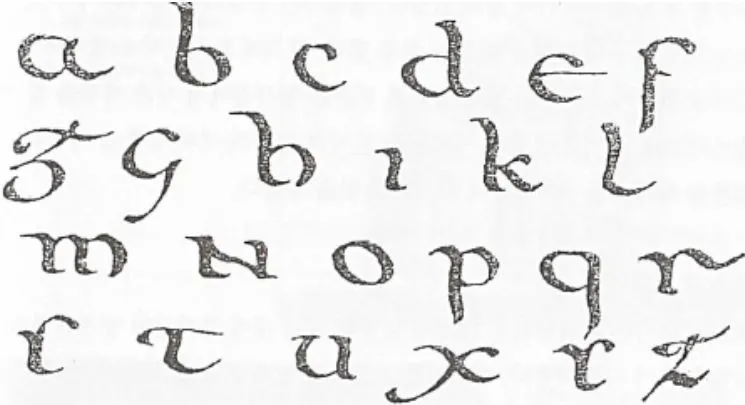 a b c d e f
ᵹ g h ı k l
m N o p q r
s t u x y z